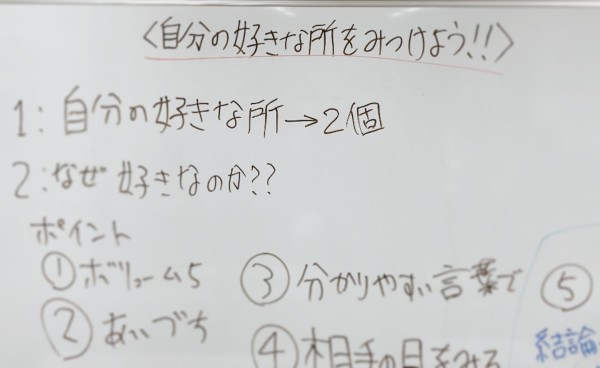 〈自分の好きな所をみつけよう!!〉
1:自分の好きな所→2個
2:なぜ好きなのか??
ポイント
①ボリューム5
②あいづち
③分かりやすい言葉で
④相手の目をみる
⑤
結論